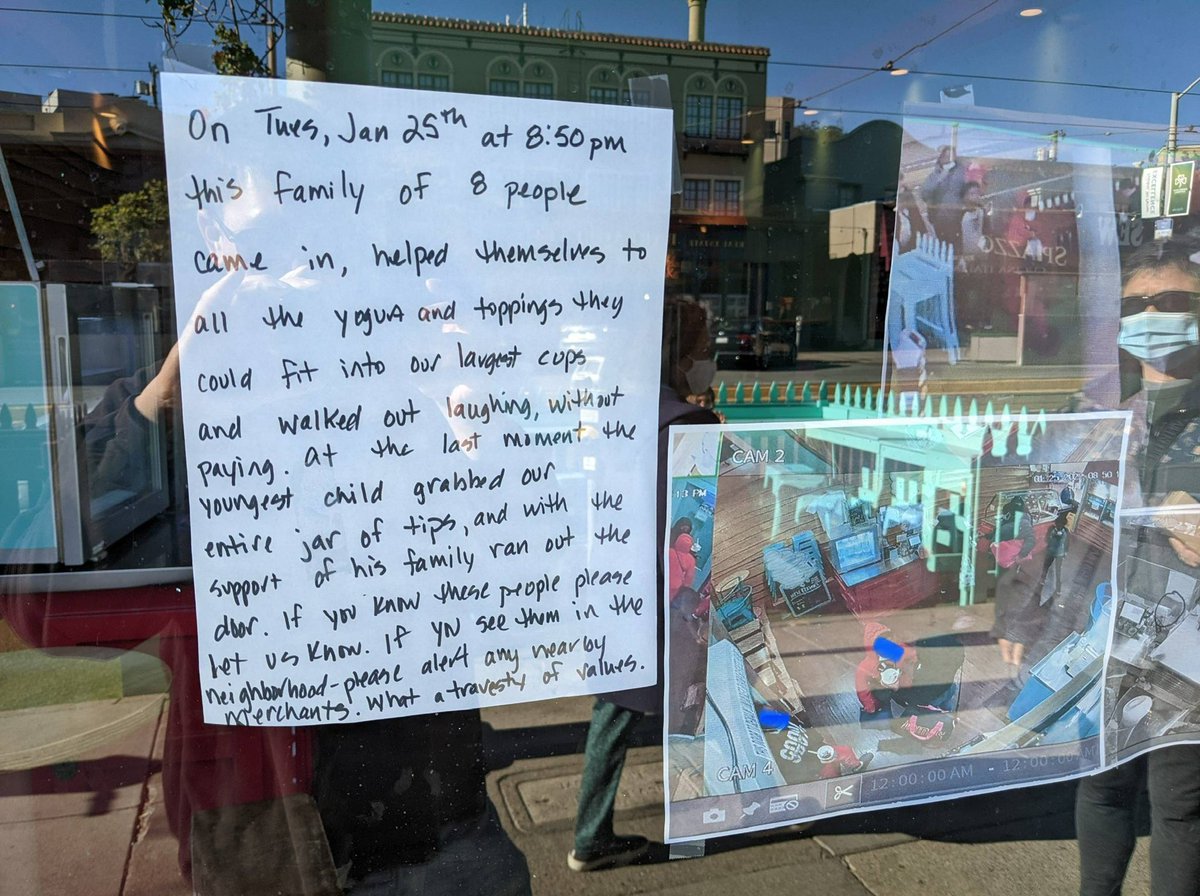 On Tues, Jan 25th at 8:50pm
this family of 8 people
came in, helped themselves to
all the yogurt and toppings they
could fit into our largest cups
and walked out laughing, without
paying. At the last moment the
youngest child grabbed our
entire jar of tips, and with the
support of his family ran out the
door. If you know these people please
let us know. If you see them in the
neighborhood-please alert any nearby
merchants. What a travesty of values.
CAM 2
13 PM
CAM 4
12:00:00 AM - 12:00:00 AM
REAL ESTATE
SPIAZZO